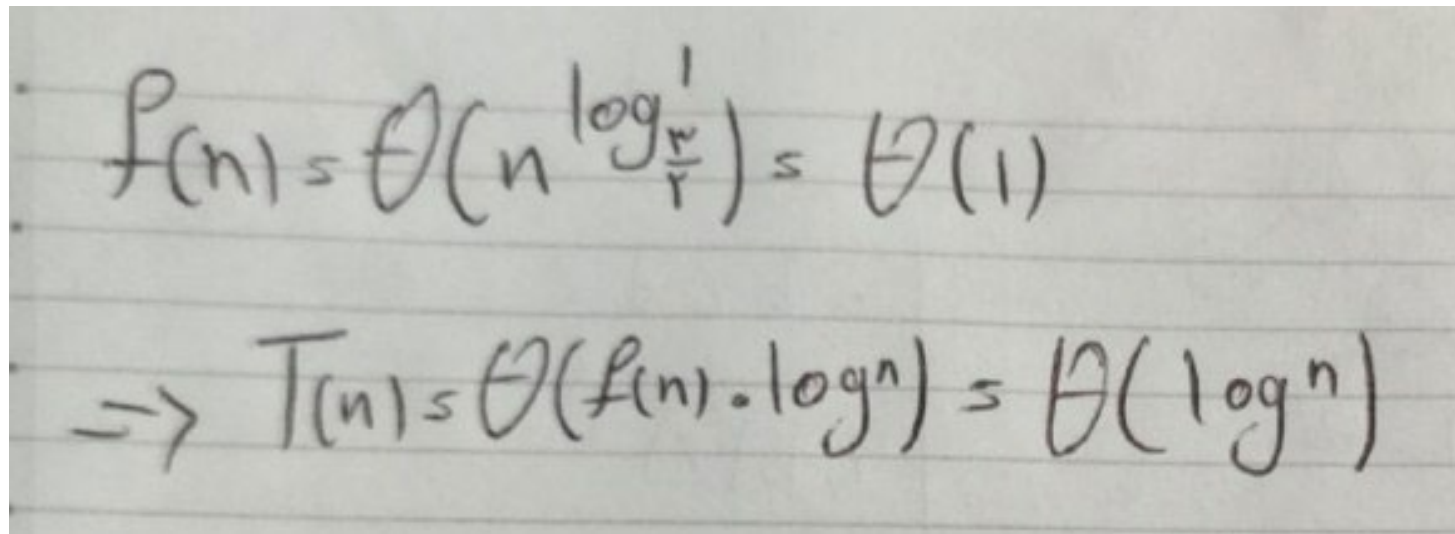 f(n) = θ(n^{log_{۳/۲} 1}) = θ(1)
=> T(n) = θ(f(n) . log n) = θ(log n)